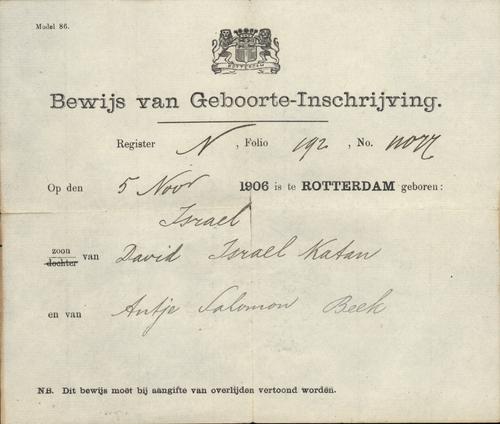 Model 86.
ROTTERDAM
Bewijs van Geboorte-Inschrijving.
Register N, Folio 192, No.
Op den 5 Novr 1906 is te ROTTERDAM geboren:
Israel
zoon
dochter van David Israel Katan
en van Antje Salomon Beek
N.B. Dit bewijs moet bij aangifte van overlijden vertoond worden.